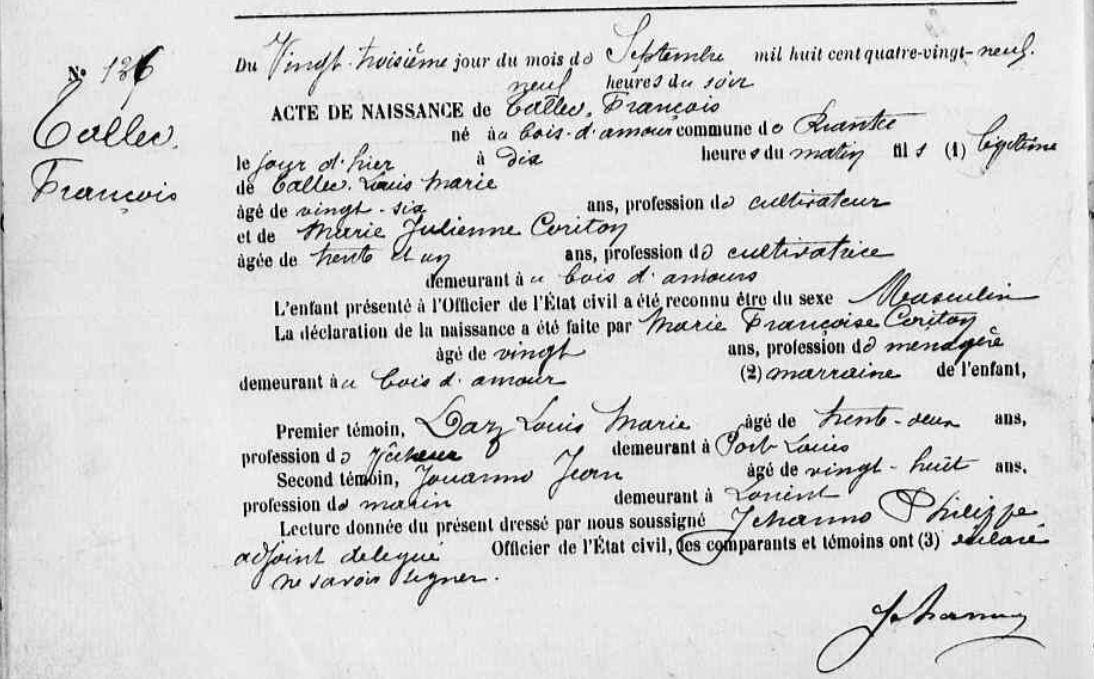 Du Vingt-troisième jour du mois de Septembre mil huit cent quatre-vingt-neuf.
neuf heures du soir
N° 136
ACTE DE NAISSANCE de Tallec, François
Tallec.
François
né au bois-d'amour commune de Riantec
le jour d'hier à Dix heures du matin fils (1) légitime
de Tallec. Louis Marie
âgé de vingt-six ans, profession de cultivateur
et de Marie Julienne Coriton
âgée de trente et un ans, profession de cultivatrice
demeurant à u bois d'amours
L'enfant présenté à l'Officier de l'État civil a été reconnu être du sexe Masculin
La déclaration de la naissance a été faite par Marie Françoise Coriton
âgé de vingt ans, profession de menagère
demeurant à u bois d'amour (2) marraine de l'enfant,
Premier témoin, Daz Louis Marie âgé de trente-deux ans,
profession de Pêcheur demeurant à Port Louis
Second témoin, Jouanno Jean âgé de vingt-huit ans,
profession de marin demeurant à Lorient
Lecture donnée du présent dressé par nous soussigné Jehanno Philippe
adjoint delegué Officier de l'État civil, les comparants et témoins ont (3) déclaré
ne savoir signer.
Jehanno